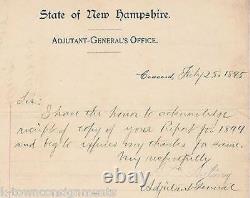 State of New Hampshire.
ADJUTANT-GENERAL'S OFFICE.
Concord, July 25. 1895
Sir:
I have the honor to acknowledge
receipt of copy of your Report for 1894
and beg to express my thanks for same.
Very respectfully
Adjutant General
k-townconsignments